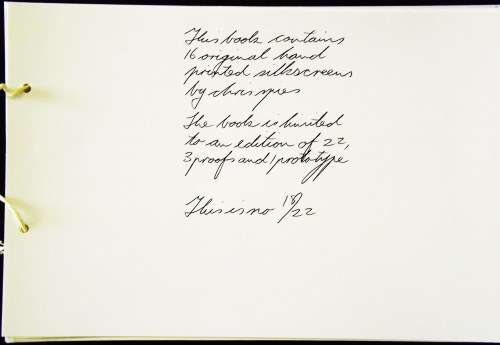 This book contains
16 original hand
printed silkscreens
by chris spies
The book is limited
to an edition of 22,
3 proofs and 1 prototype
This is no 18/22